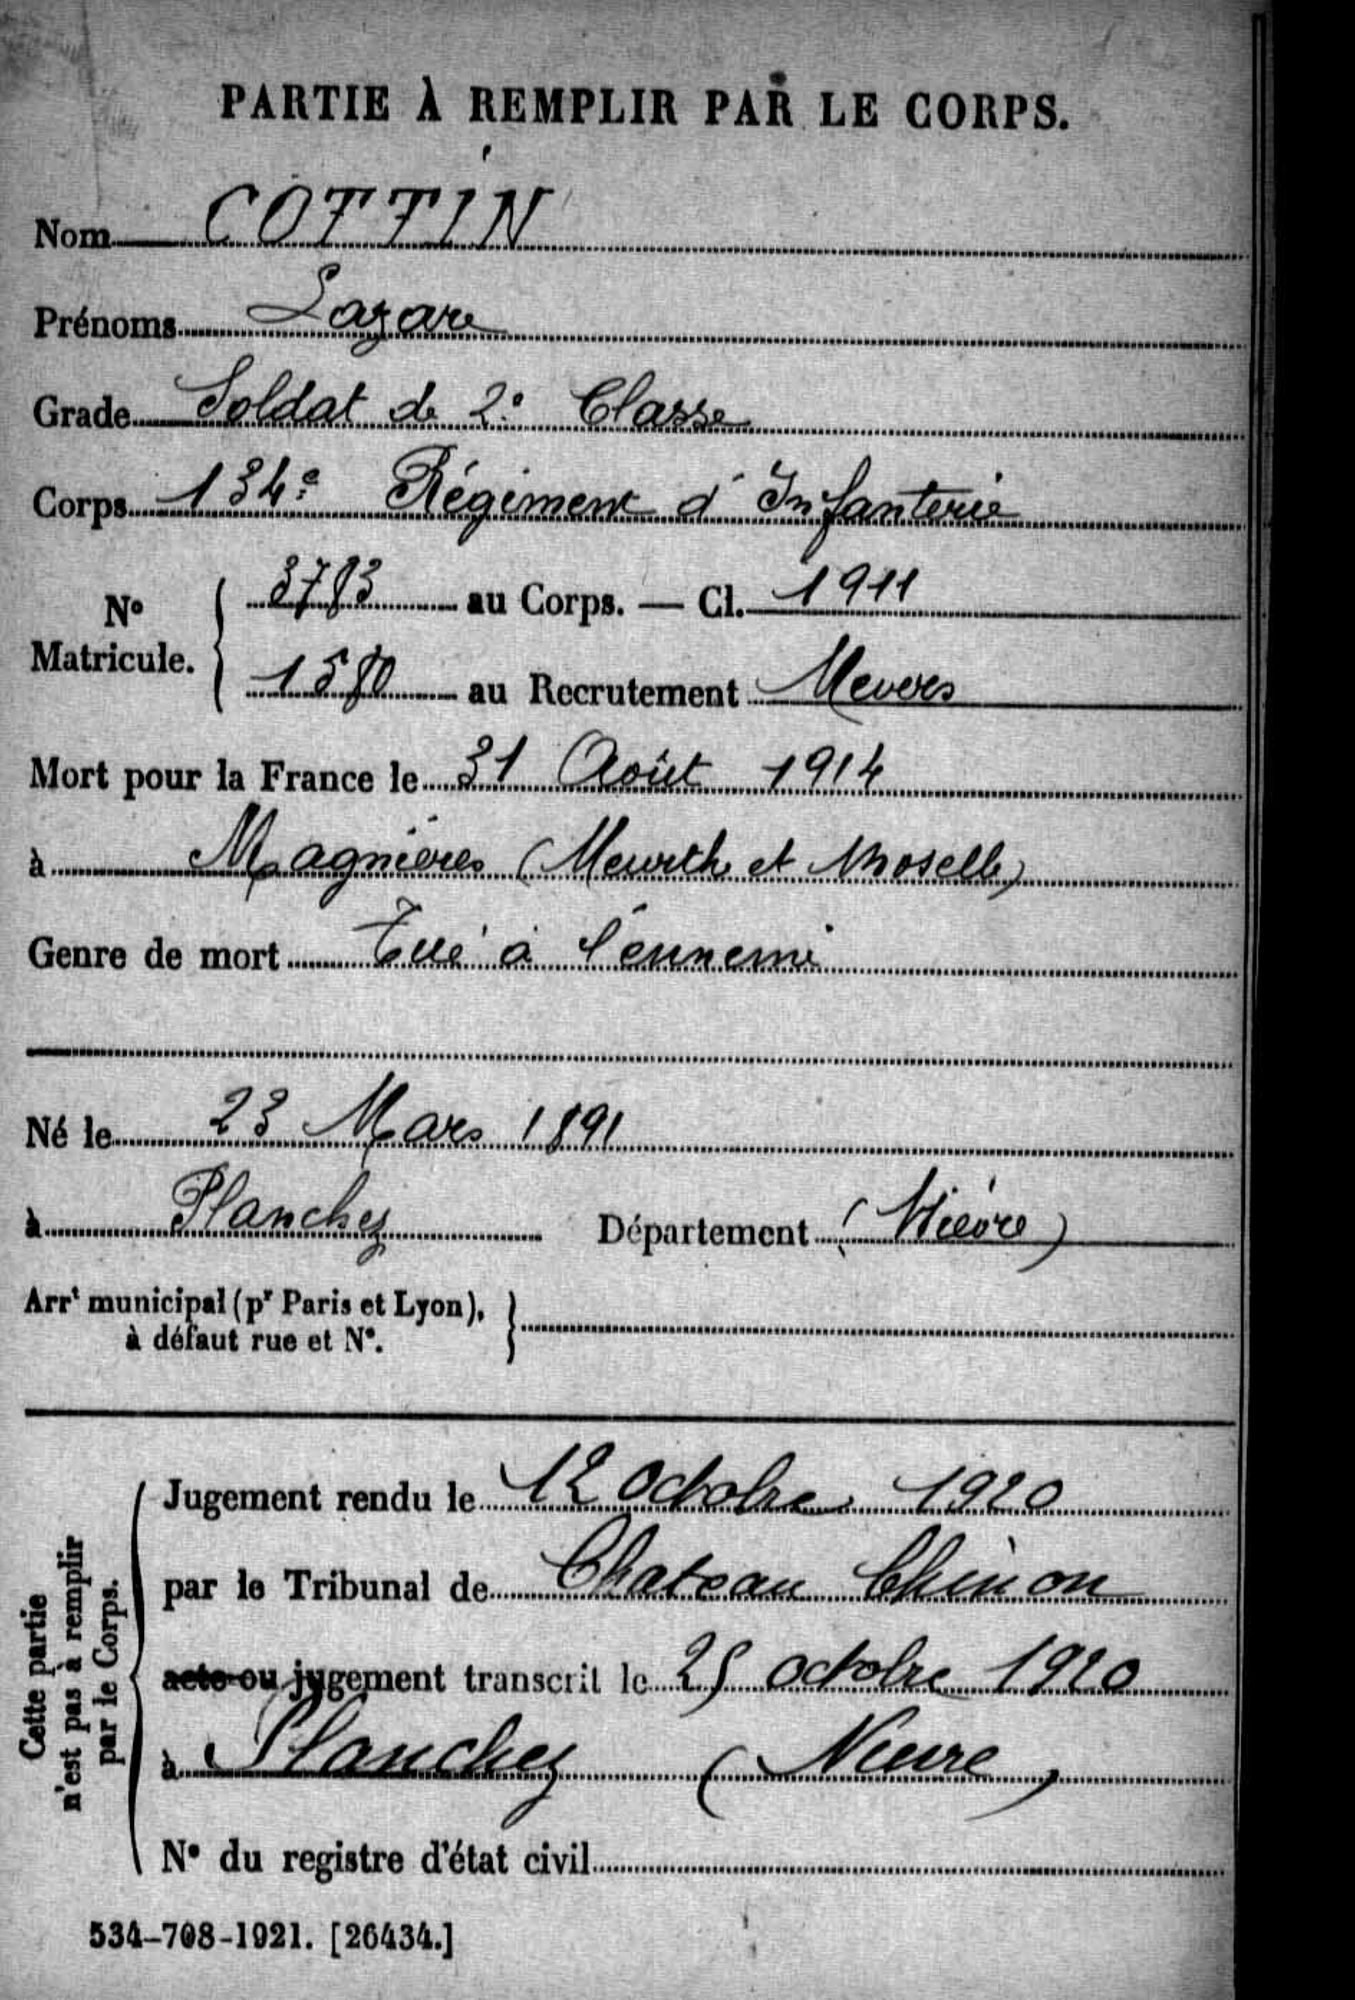 PARTIE À REMPLIR PAR LE CORPS.
Nom COTTIN
Prénoms Lazare
Grade Soldat de 2e Classe
Corps 134e Régiment d'Infanterie
No Matricule. { 3783 au Corps. — Cl. 1911
1580 au Recrutement Nevers
Mort pour la France le 31 Août 1914
à Magnières (Meurthe et Moselle)
Genre de mort Tué à l'ennemi
Né le 23 Mars 1891
à Planchez Département (Nièvre)
Arrt municipal (pr Paris et Lyon),
à défaut rue et No.
Cette partie n'est pas à remplir par le Corps.
Jugement rendu le 12 octobre 1920
par le Tribunal de Chateau Chinon
acte ou jugement transcrit le 25 octobre 1920
à Planchez (Nievre)
No du registre d'état civil
534-708-1921. [26434.]